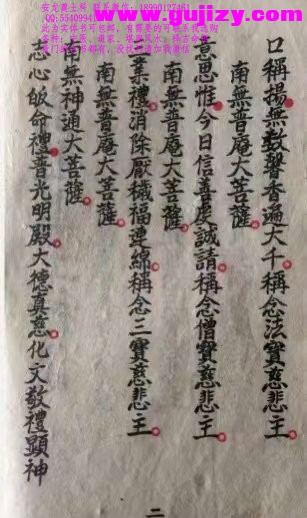 www.gujizy.com
口稱揚無數聲香遍大千稱念法寶慈悲主
南無普庵大菩薩
意思惟今日信善虔誠請稱念僧寶慈悲主
南無普庵大菩薩
業禮消除厭穢福連綿稱念三寶慈悲主
南無普庵大菩薩
南無神通大菩薩
志心皈命禮普光明殿大德真慈化文敬禮顯神
二